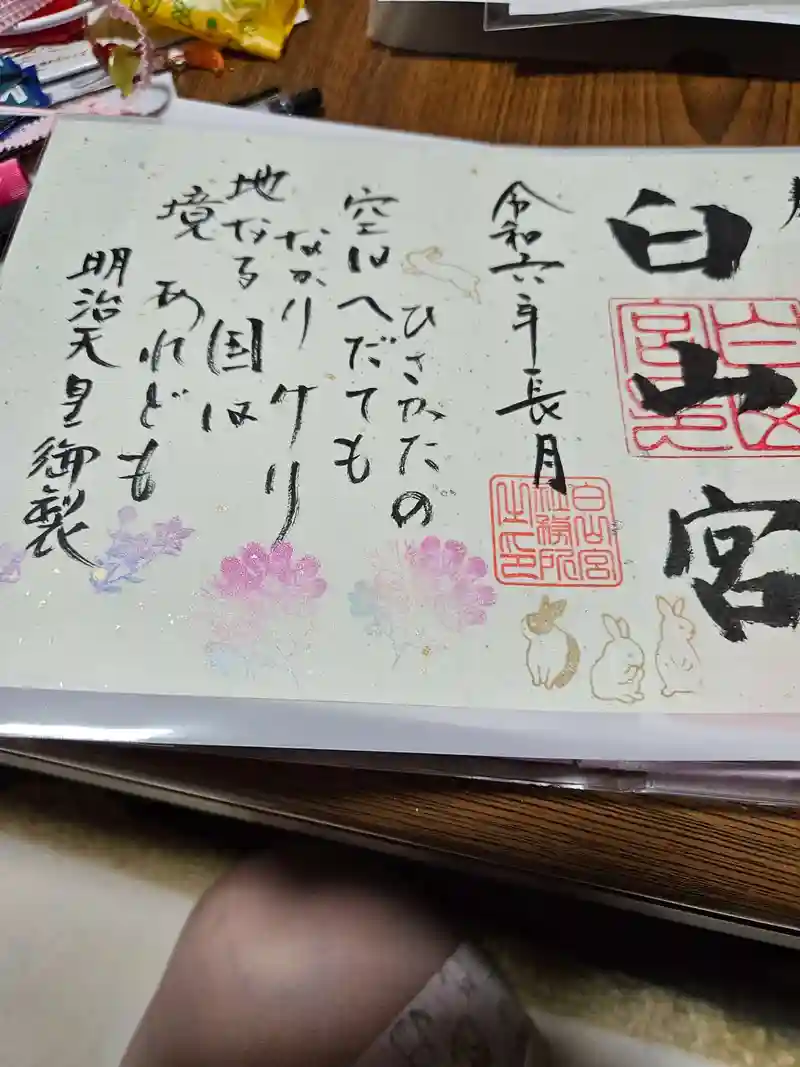 白山宮
白山宮印
令和六年長月
白山宮
社務所
之印
ひさかたの
空はへだても
なかりけり
地なる国は
境あれども
明治天皇御製